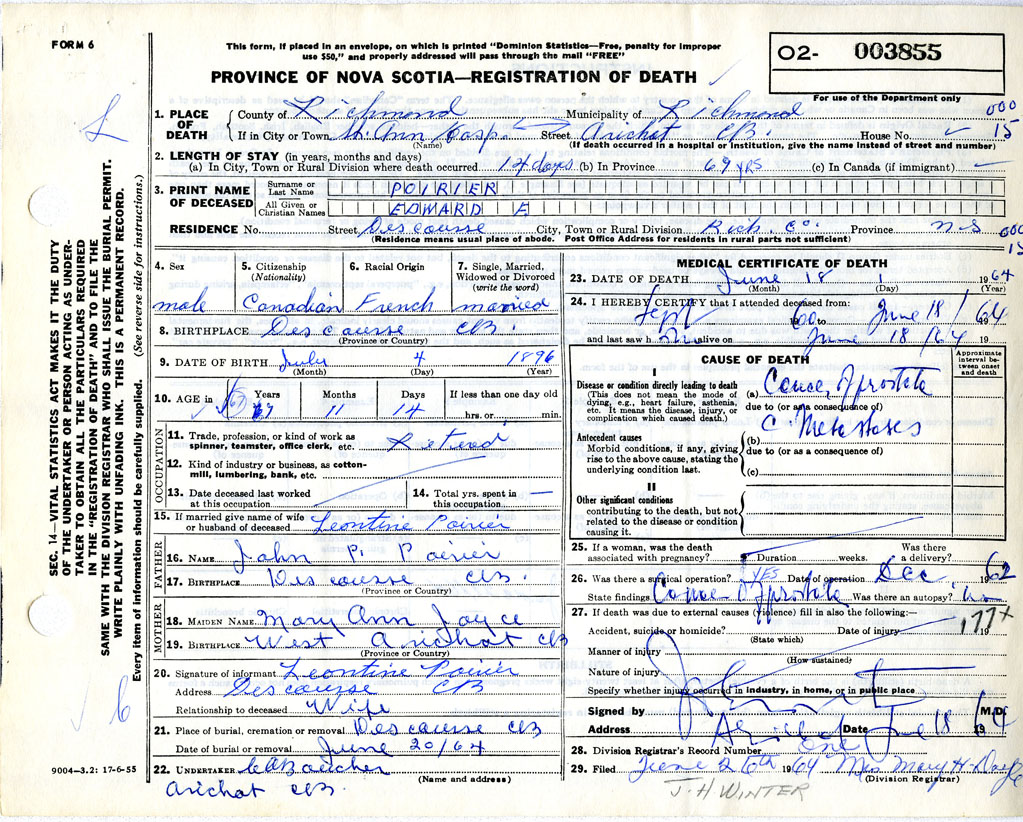 FORM 6
This form, if placed in an envelope, on which is printed "Dominion Statistics—Free, penalty for improper
use $50," and properly addressed will pass through the mail "FREE"
02- 003855
For use of the Department only
PROVINCE OF NOVA SCOTIA—REGISTRATION OF DEATH
SEC. 14—VITAL STATISTICS ACT MAKES IT THE DUTY
OF THE UNDERTAKER OR PERSON ACTING AS UNDER-
TAKER TO OBTAIN ALL THE PARTICULARS REQUIRED
IN THE "REGISTRATION OF DEATH" AND TO FILE THE
SAME WITH THE DIVISION REGISTRAR WHO SHALL ISSUE THE BURIAL PERMIT.
WRITE PLAINLY WITH UNFADING INK. THIS IS A PERMANENT RECORD.
Every item of information should be carefully supplied. (See reverse side for instructions.)
1. PLACE OF DEATH County of Richmond Municipality of Richmond 000
If in City or Town St. Ann Hosp. Street Arichat CB. House No. 15
(Name) (If death occurred in a hospital or institution, give the name instead of street and number)
2. LENGTH OF STAY (in years, months and days)
(a) In City, Town or Rural Division where death occurred 14 days (b) In Province 69 yrs (c) In Canada (if immigrant) —
3. PRINT NAME OF DECEASED Surname or Last Name POIRIER
All Given or Christian Names EDWARD E
RESIDENCE No. Street Descousse City, Town or Rural Division Rich. Co. Province N-S 000
(Residence means usual place of abode. Post Office Address for residents in rural parts not sufficient) 15
4. Sex male
5. Citizenship (Nationality) Canadian
6. Racial Origin French
7. Single, Married, Widowed or Divorced (write the word) married
8. BIRTHPLACE Descousse CB.
(Province or Country)
9. DATE OF BIRTH July 4 1896
(Month) (Day) (Year)
10. AGE in Years 67 Months 11 Days 14 If less than one day old
hrs. or min.
OCCUPATION
11. Trade, profession, or kind of work as spinner, teamster, office clerk, etc. Retired
12. Kind of industry or business, as cotton-mill, lumbering, bank, etc.
13. Date deceased last worked at this occupation
14. Total yrs. spent in this occupation —
15. If married give name of wife or husband of deceased Leontine Poirier
FATHER
16. NAME John P. Poirier
17. BIRTHPLACE Descousse CB.
(Province or Country)
MOTHER
18. MAIDEN NAME Mary Ann Joyce
19. BIRTHPLACE West Arichat CB
(Province or Country)
20. Signature of informant Leontine Poirier
Address Descousse CB
Relationship to deceased Wife
21. Place of burial, cremation or removal Descousse CB
Date of burial or removal June 20/64
22. UNDERTAKER CA Boucher
(Name and address)
Arichat CB.
9004—3.2: 17-6-55
MEDICAL CERTIFICATE OF DEATH
23. DATE OF DEATH June 18 1964
(Month) (Day) (Year)
24. I HEREBY CERTIFY that I attended deceased from:
Sept 60 to June 18/ 1964
and last saw him alive on June 18/64 19
CAUSE OF DEATH
Approximate interval between onset and death
I
Disease or condition directly leading to death
(This does not mean the mode of dying, e.g., heart failure, asthenia, etc. It means the disease, injury, or complication which caused death.)
(a) Cance of prostate
due to (or as a consequence of)
c Metastases
Antecedent causes
Morbid conditions, if any, giving rise to the above cause, stating the underlying condition last.
(b)
due to (or as a consequence of)
(c)
II
Other significant conditions
contributing to the death, but not related to the disease or condition causing it.
25. If a woman, was the death associated with pregnancy? Duration weeks. Was there a delivery?
26. Was there a surgical operation? YES Date of operation Dec 1962
State findings Cance of prostate Was there an autopsy? no
27. If death was due to external causes (violence) fill in also the following:— 177x
Accident, suicide or homicide? Date of injury 19
(State which)
Manner of injury
(How sustained)
Nature of injury
Specify whether injury occurred in industry, in home, or in public place
Signed by M.D.
Address Arichat Date June 18 1964
28. Division Registrar's Record Number One
29. Filed June 26th 1964 Mrs Mary H.
(Division Registrar)
J. H WINTER